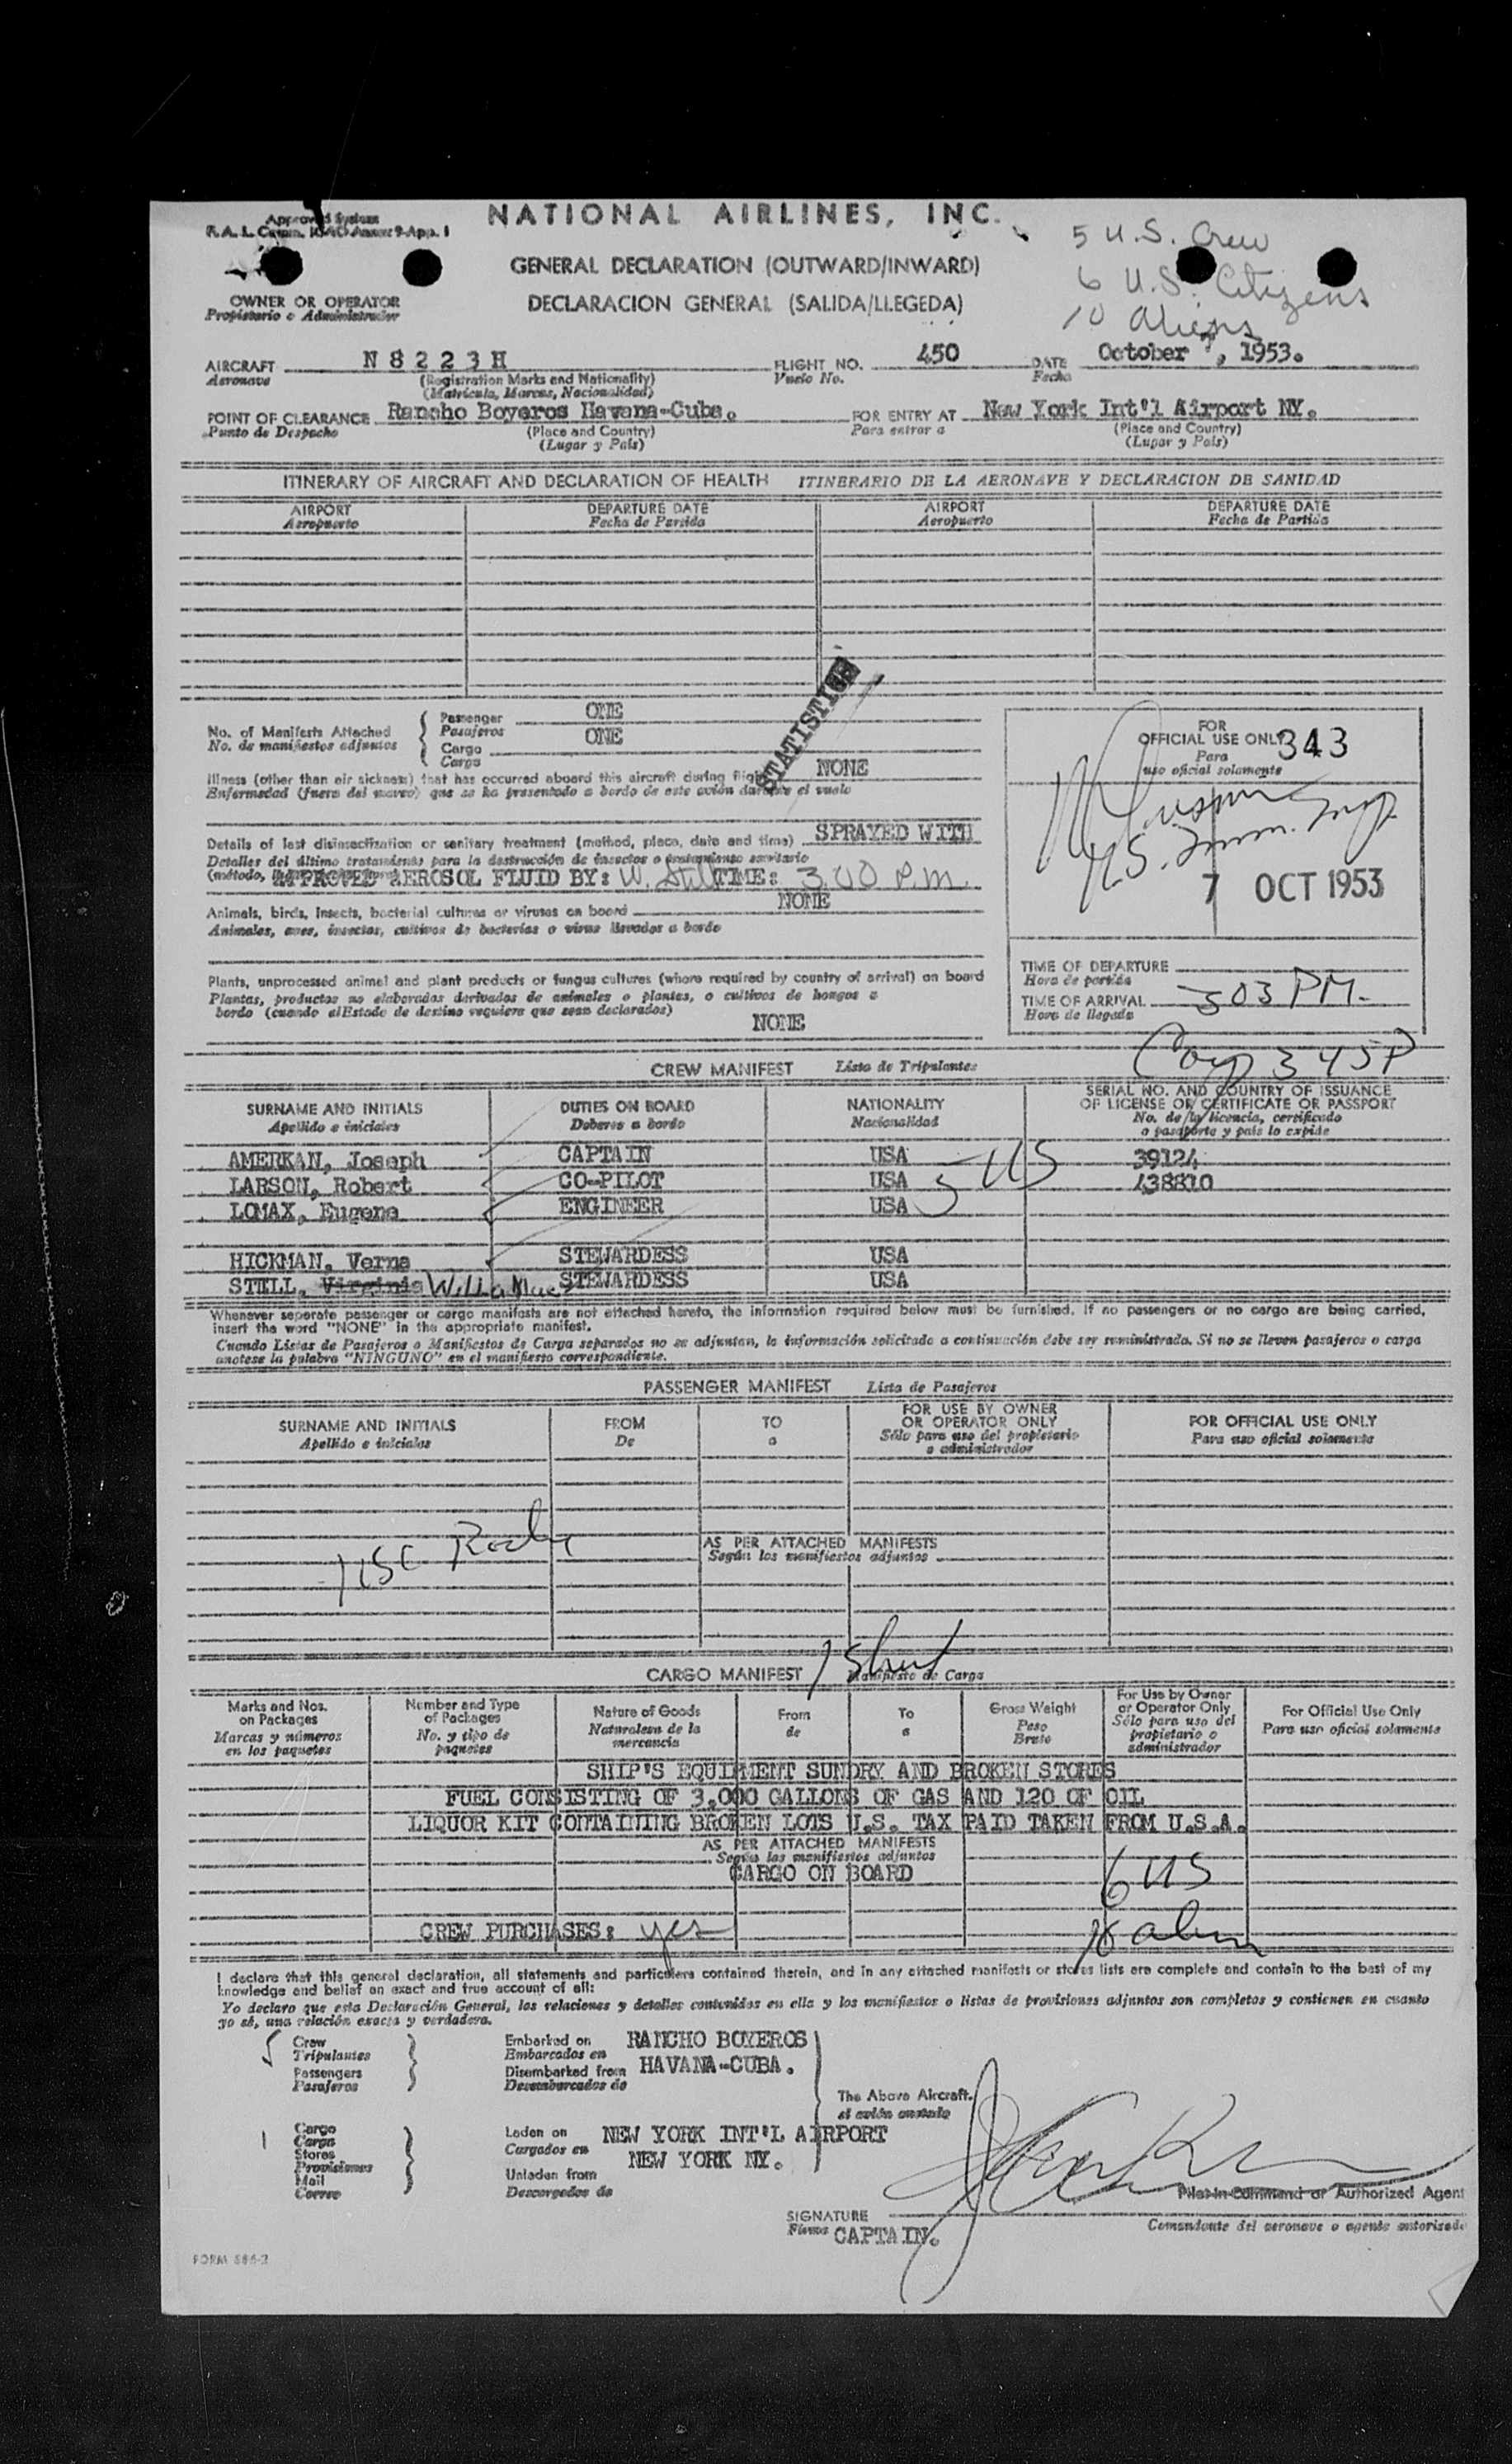 Approved System
F.A.L. Comm. ICAO Annex 9-App. 1
NATIONAL AIRLINES, INC.
5 U.S. Crew
6 U.S. Citizens
10 Aliens
GENERAL DECLARATION (OUTWARD/INWARD)
DECLARACION GENERAL (SALIDA/LLEGEDA)
OWNER OR OPERATOR
Propietario o Administrador
AIRCRAFT N 8 2 2 3 H FLIGHT NO. 450 DATE October 7, 1953.
Aeronave (Registration Marks and Nationality) Vuelo No. Fecha
(Matricula, Marcas, Nacionalidad)
POINT OF CLEARANCE Rancho Boyeros Havana-Cuba. FOR ENTRY AT New York Int'l Airport NY.
Punto de Despacho (Place and Country) Para entrar a (Place and Country)
(Lugar y País) (Lugar y País)
ITINERARY OF AIRCRAFT AND DECLARATION OF HEALTH ITINERARIO DE LA AERONAVE Y DECLARACION DE SANIDAD
AIRPORT DEPARTURE DATE AIRPORT DEPARTURE DATE
Aeropuerto Fecha de Partida Aeropuerto Fecha de Partida
STATISTICS
No. of Manifests Attached Passenger ONE
No. de manifiestos adjuntos Pasajeros
Cargo ONE
Carga
FOR
OFFICIAL USE ONLY 343
Para
uso oficial solamente
Illness (other than air sickness) that has occurred aboard this aircraft during flight NONE
Enfermedad (fuera del mareo) que se ha presentado a bordo de este avión durante el vuelo
U.S. Imm. Insp.
7 OCT 1953
Details of last disinsectization or sanitary treatment (method, place, date and time) SPRAYED WITH
Detalles del último tratamiento para la destrucción de insectos o tratamiento sanitario
(método,
APPROVED AEROSOL FLUID BY: W. Still TIME: 3.00 P.m.
Animals, birds, insects, bacterial cultures or viruses on board NONE
Animales, aves, insectos, cultivos de bacterias o virus llevados a bordo
Plants, unprocessed animal and plant products or fungus cultures (where required by country of arrival) on board
Plantas, productos no elaborados derivados de animales o plantas, o cultivos de hongos a
bordo (cuando el Estado de destino requiera que sean declarados)
NONE
TIME OF DEPARTURE
Hora de partida
TIME OF ARRIVAL 303 PM.
Hora de llegada
345P
CREW MANIFEST Lista de Tripulantes
SURNAME AND INITIALS DUTIES ON BOARD NATIONALITY SERIAL NO. AND COUNTRY OF ISSUANCE
OF LICENSE OR CERTIFICATE OR PASSPORT
Apellido e iniciales Deberes a bordo Nacionalidad No. de la licencia, certificado
o pasaporte y país lo expide
AMERKAN, Joseph CAPTAIN USA 39124
LARSON, Robert CO-PILOT USA 5 US 438810
LOMAX, Eugene ENGINEER USA
HICKMAN, Verna STEWARDESS USA
STILL, Virginia Willa Mae STEWARDESS USA
Whenever seperate passenger or cargo manifests are not attached hereto, the information required below must be furnished. If no passengers or no cargo are being carried,
insert the word "NONE" in the appropriate manifest.
Cuando Listas de Pasajeros o Manifiestos de Carga separados no se adjuntan, la información solicitada a continuación debe ser suministrada. Si no se lleven pasajeros o carga
anotese la palabra "NINGUNO" en el manifiesto correspondiente.
PASSENGER MANIFEST Lista de Pasajeros
SURNAME AND INITIALS FROM TO FOR USE BY OWNER
OR OPERATOR ONLY FOR OFFICIAL USE ONLY
Apellido e iniciales De a Sólo para uso del propietario
o administrador Para uso oficial solamente
AS PER ATTACHED MANIFESTS
Según los manifiestos adjuntos
CARGO MANIFEST Manifiesto de Carga
Marks and Nos.
on Packages
Marcas y números
en los paquetes
Number and Type
of Packages
No. y tipo de
paquetes
Nature of Goods
Naturaleza de la
mercancia
From
de
To
a
Gross Weight
Peso
Bruto
For Use by Owner
or Operator Only
Sólo para uso del
propietario o
administrador
For Official Use Only
Para uso oficial solamente
SHIP'S EQUIPMENT SUNDRY AND BROKEN STORES
FUEL CONSISTING OF 3,000 GALLONS OF GAS AND 120 OF OIL
LIQUOR KIT CONTAINING BROKEN LOTS U.S. TAX PAID TAKEN FROM U.S.A.
AS PER ATTACHED MANIFESTS
Según los manifiestos adjuntos
CARGO ON BOARD
6 US
CREW PURCHASES: yes
I declare that this general declaration, all statements and particulars contained therein, and in any attached manifests or stores lists are complete and contain to the best of my
knowledge and belief an exact and true account of all:
Yo declaro que esta Declaración General, las relaciones y detalles contenidos en ella y los manifiestos o listas de provisiones adjuntos son completos y contienen en cuanto
yo sé, una relación exacta y verdadera.
5 Crew
Tripulantes
Passengers
Pasajeros
Embarked on RANCHO BOYEROS
Embarcados en
Disembarked from HAVANA-CUBA.
Desembarcados de
The Above Aircraft.
el avión anotado
1 Cargo
Carga
Stores
Provisiones
Mail
Correo
Laden on NEW YORK INT'L AIRPORT
Cargados en
NEW YORK NY.
Unladen from
Descargados de
Pilot-in-Command or Authorized Agent
SIGNATURE
Firma CAPTAIN.
Comandante del aeronave o agente autorizado
FORM 886-2